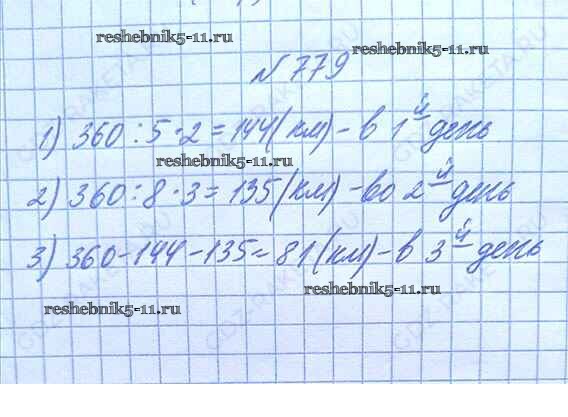 reshebnik5-11.ru
reshebnik5-11.ru
№ 779
1) 360 : 5 · 2 = 144 (км) - в 1й день
reshebnik5-11.ru
2) 360 : 8 · 3 = 135 (км) - во 2й день
3) 360 - 144 - 135 = 81 (км) - в 3й день
reshebnik5-11.ru
reshebnik5-11.ru